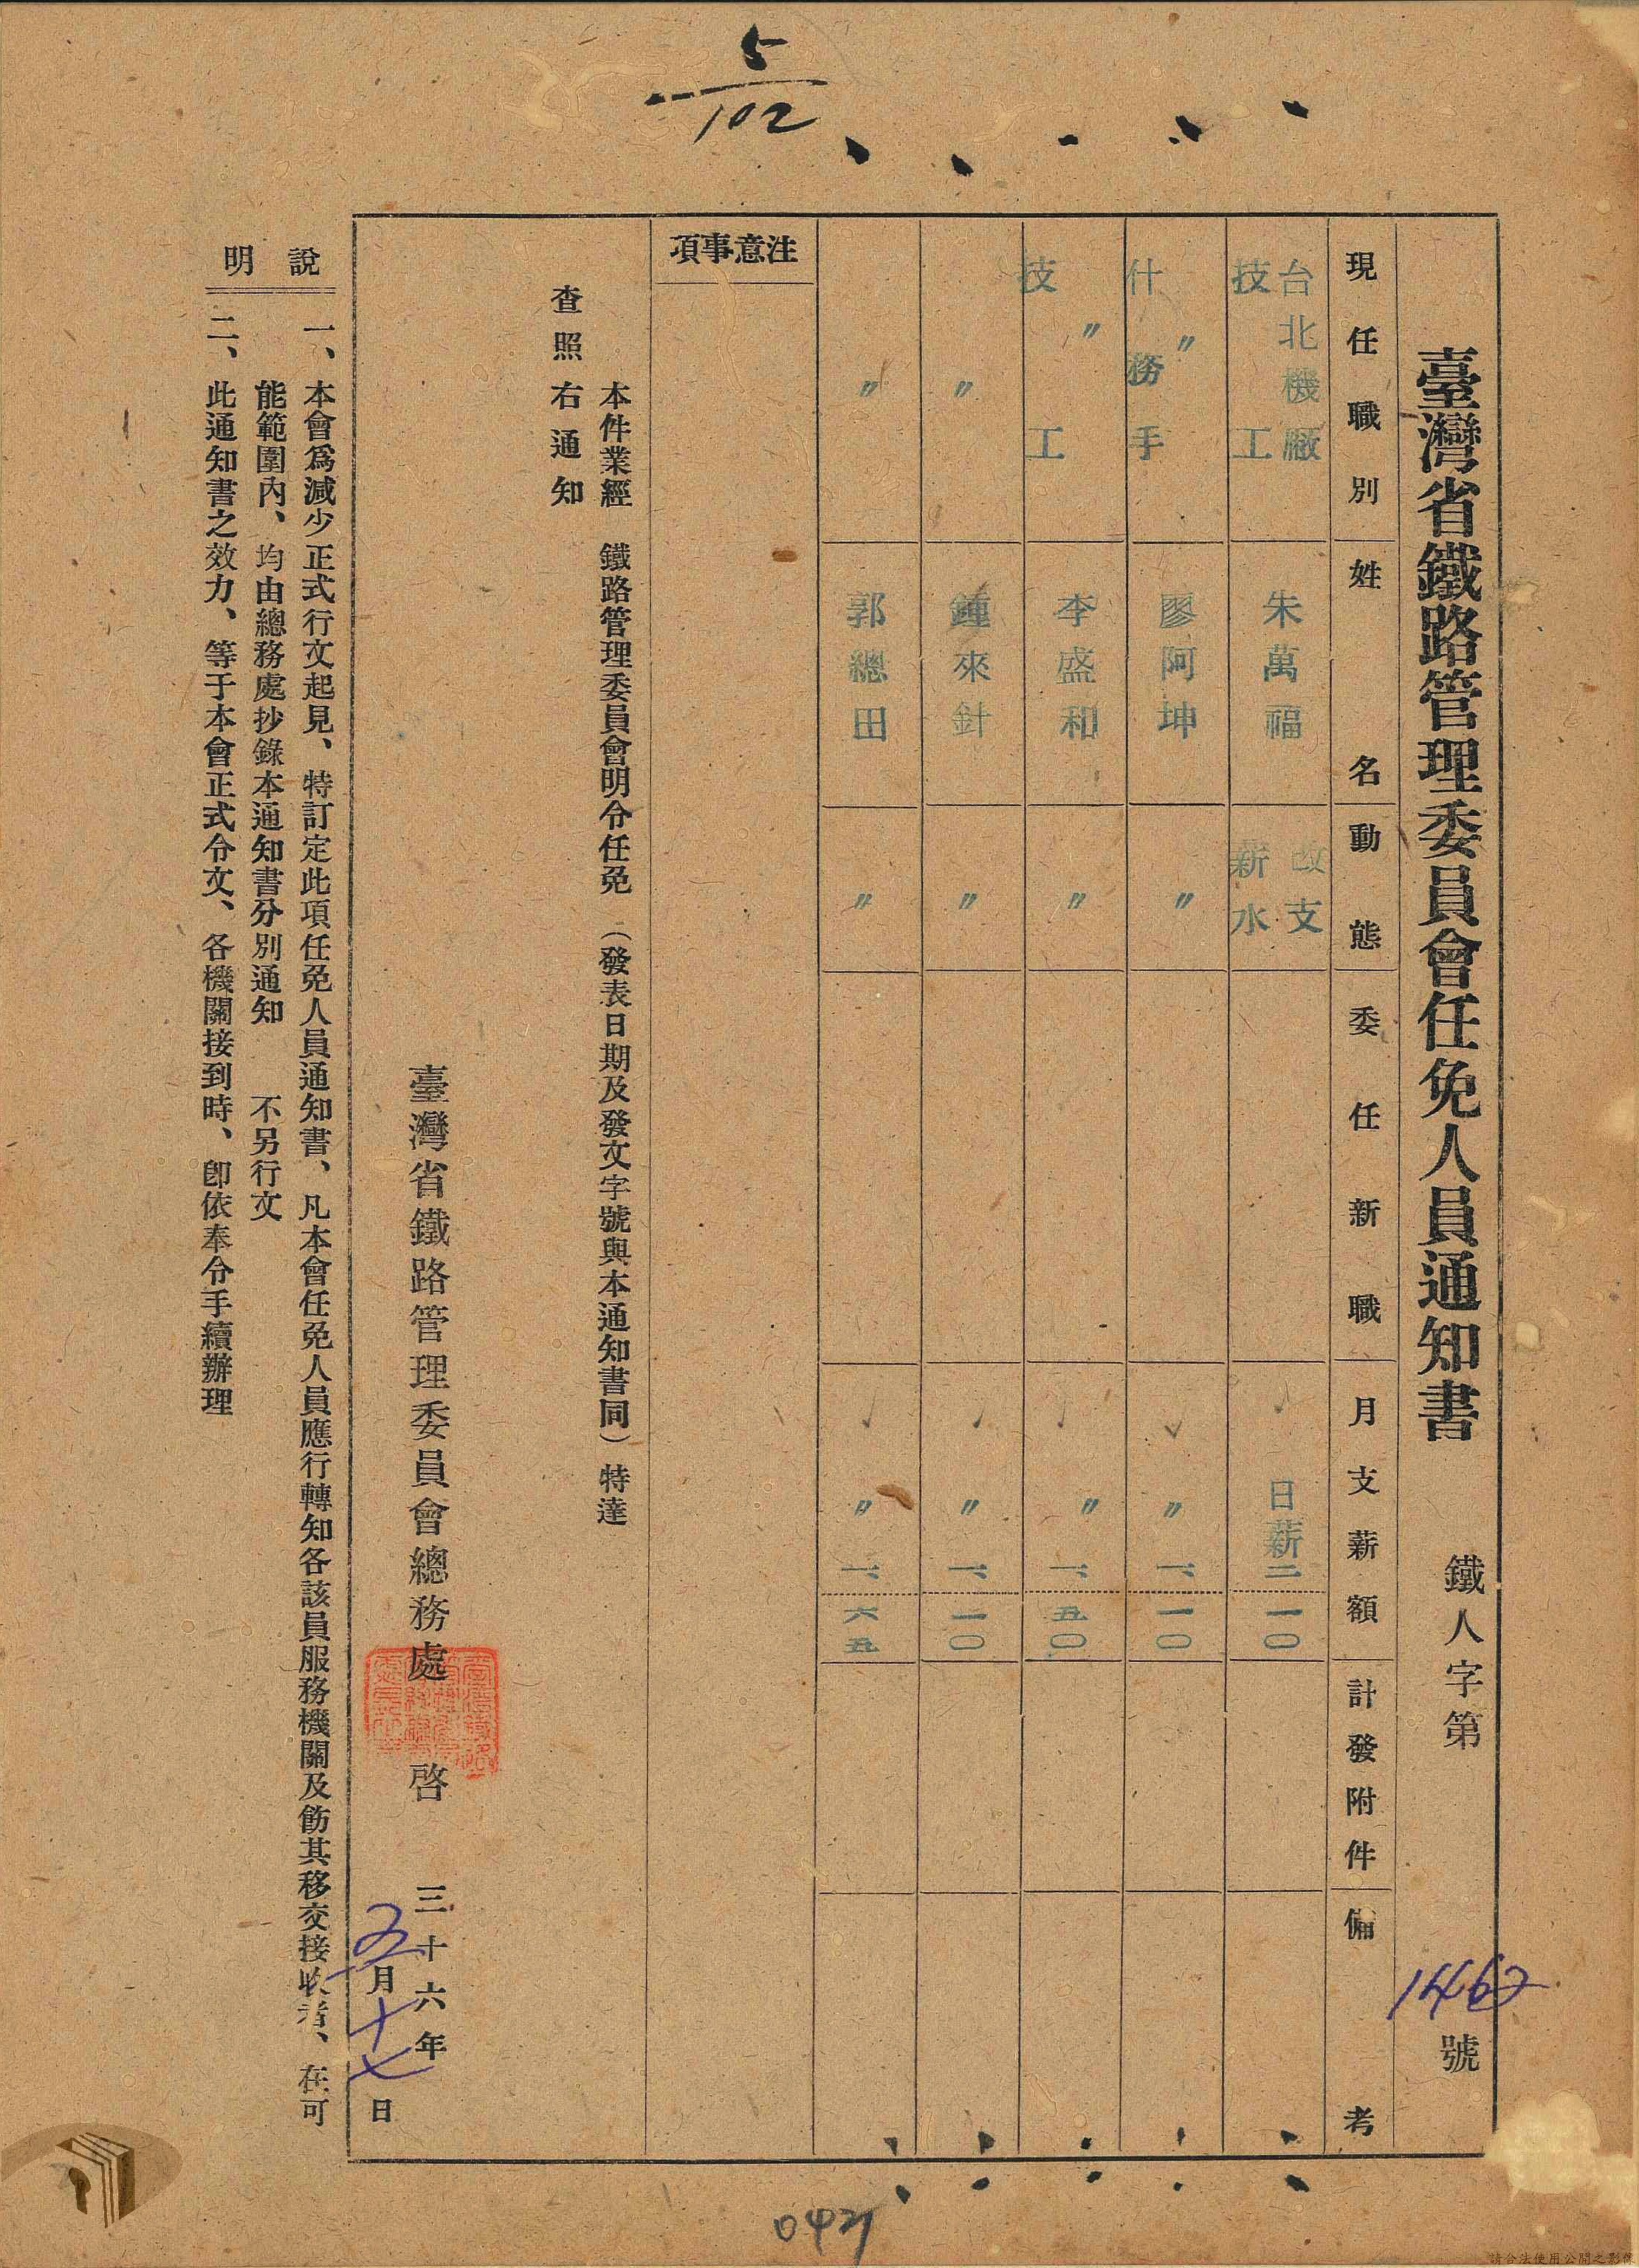 5
102
臺灣省鐵路管理委員會任免人員通知書 鐵人字第1462號
現任職別 姓名 動態 委任新職 月支薪額 計發附件 備考
台北機廠技工 朱萬福 改支薪水 日薪二 一〇
〃什務手 廖阿坤 〃 〃一、一〇
〃技工 李盛和 〃 〃一、五〇
〃 鍾來針 〃 〃一、二〇
〃 郭總田 〃 〃一、六五
注意事項
本件業經 鐵路管理委員會明令任免(發表日期及發文字號與本通知書同)特達
查照右通知
臺灣省鐵路管理委員會總務處 啓 三十六年
五月十七日
說明
一、本會爲減少正式行文起見、特訂定此項任免人員通知書、凡本會任免人員應行轉知各該員服務機關及飭其移交接收者、在可
能範圍內、均由總務處抄錄本通知書分別通知 不另行文
二、此通知書之效力、等于本會正式令文、各機關接到時、卽依奉令手續辦理
請合法使用公開之影像